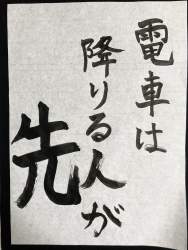 電車は
降りる人が
先